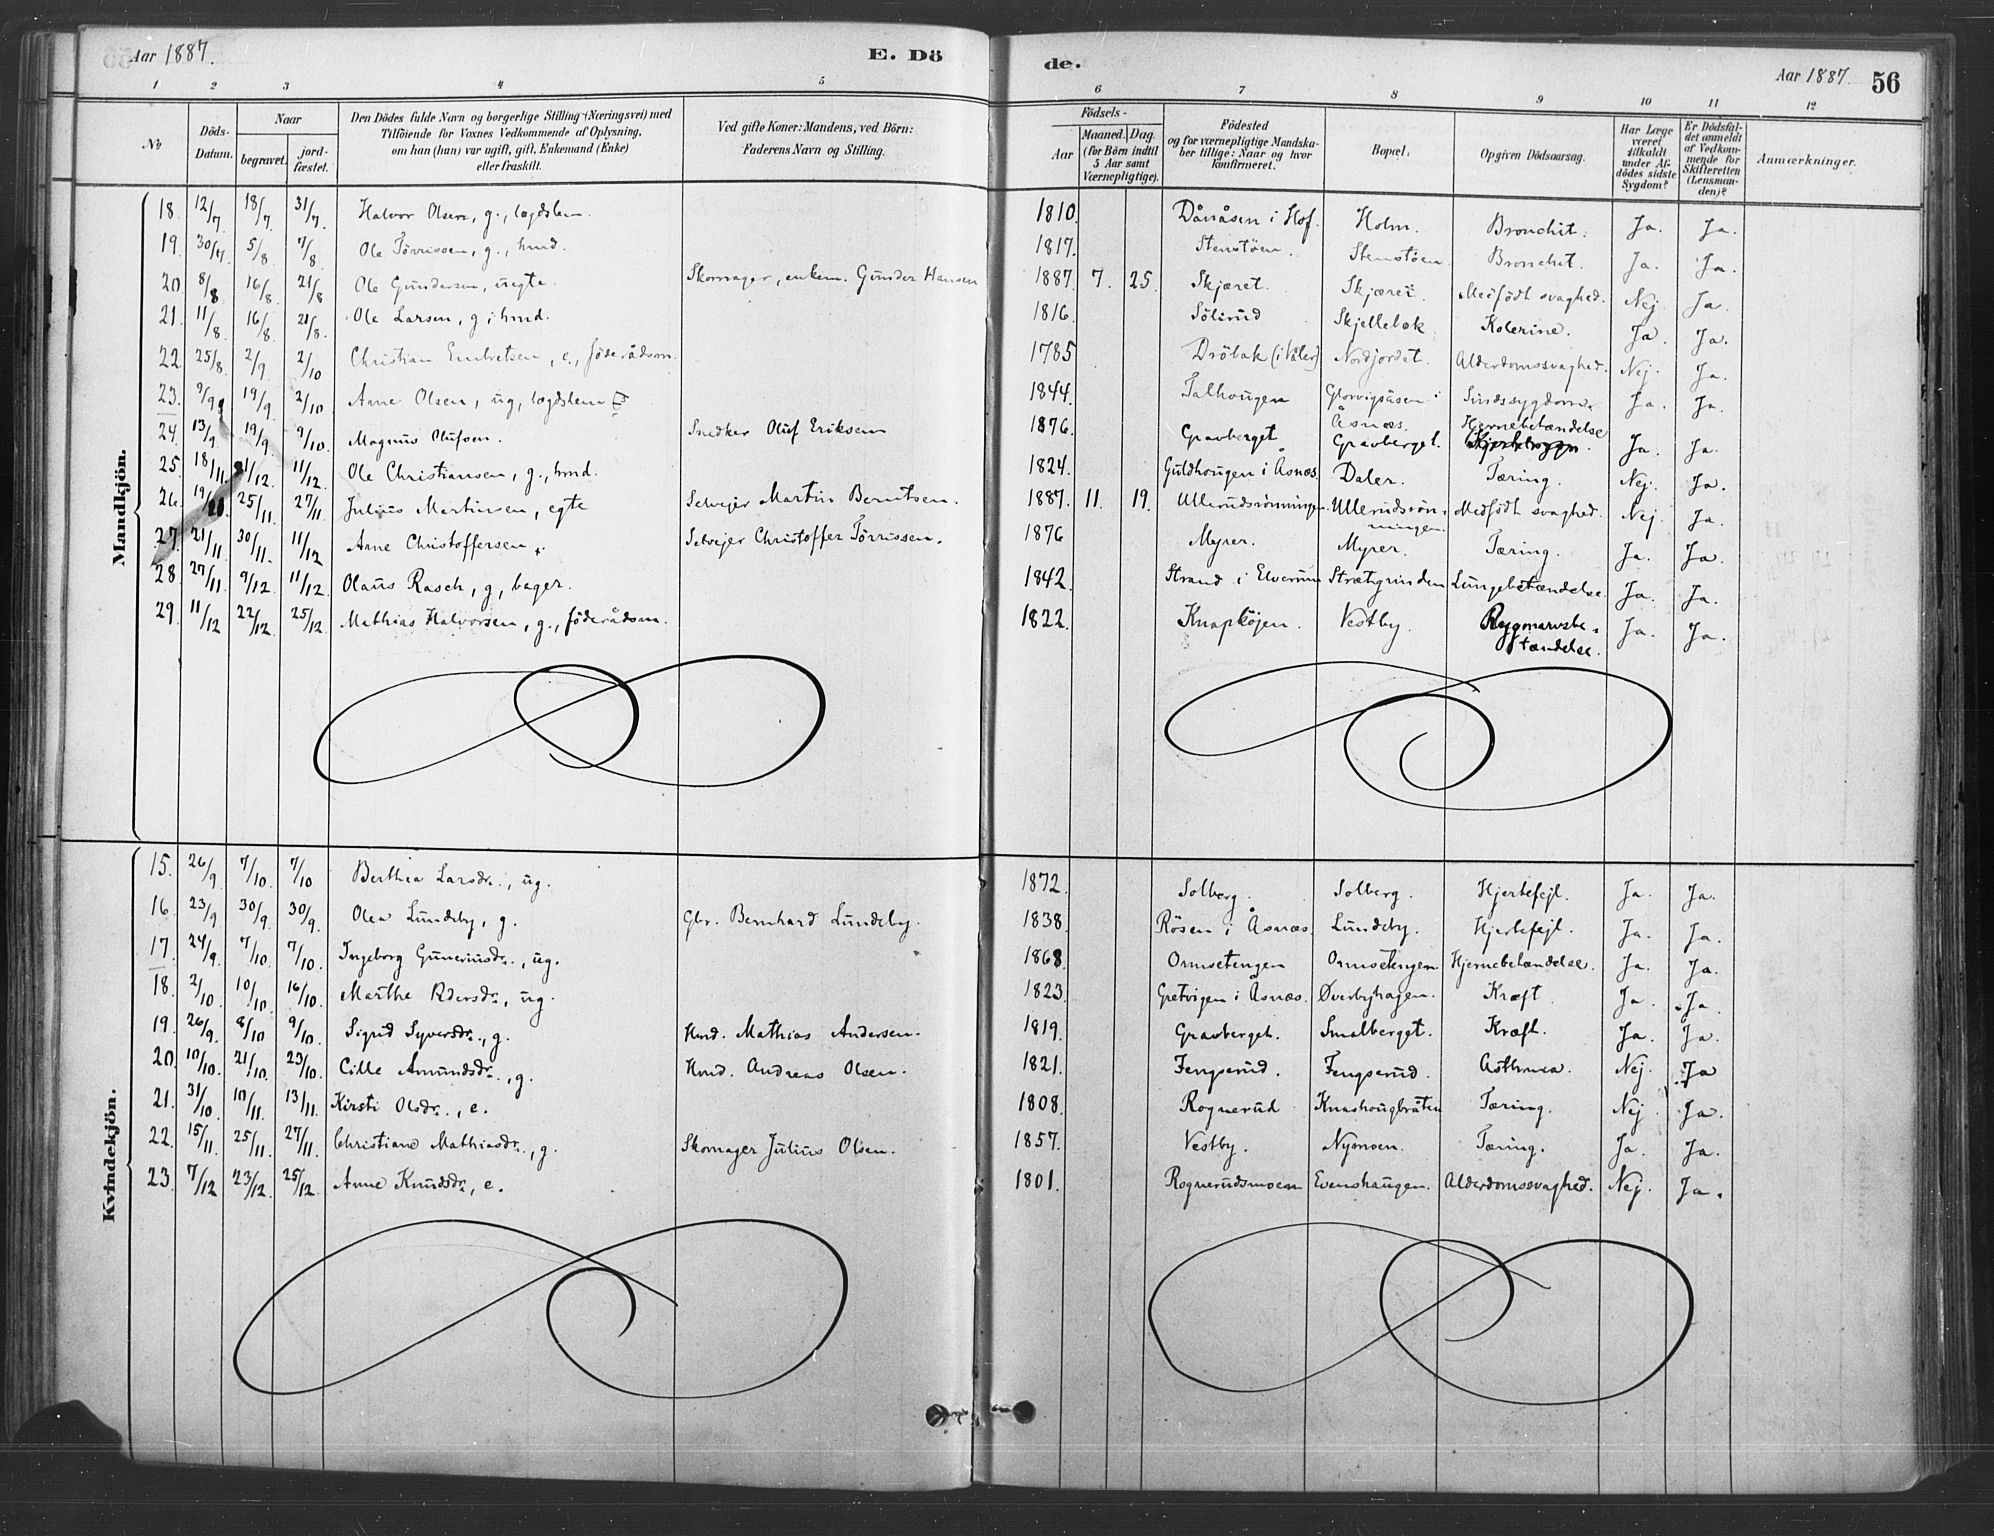 Aar 1887. E. Dö de. Aar 1887. 56
1 2 3 4 5 6 7 8 9 10 11 12
№ Döds-Datum. Naar begravet. jord-fæstet. Den Dödes fulde Navn og borgerlige Stilling (Næringsvei) med Tilföiende for Voxnes Vedkommende af Oplysning, om han (hun) var ugift, gift, Enkemand (Enke) eller fraskilt. Ved gifte Koner: Mandens, ved Börn: Faderens Navn og Stilling. Födsels- Aar Maaned. Dag. (for Börn indtil 5 Aar samt Værnepligtige). Födested og for værnepligtige Mandskaber tillige: Naar og hvor konfirmeret. Bopæl. Opgiven Dödsaarsag. Har Læge været tilkaldt under Afdödes sidste Sygdom? Er Dödsfaldet anmeldt af Vedkommende for Skifteretten (Lensmanden)? Anmærkninger.
Mandkjön.
18. 12/7. 18/7. 31/7. Halvor Olsen, g., lægdslem. 1810. Dånåsen i Hof. Holm. Bronchit. Ja. Ja.
19. 30/7. 5/8. 7/8. Ole Törrissen, g., hmd. 1817. Stenstöen. Stenstöen. Bronchit. Ja. Ja.
20. 8/8. 16/8. 21/8 Ole Gundersen, uegte. Skomager, enkem. Gunder Hansen 1887. 7. 25. Skjæret. Skjæret. Medfödt svaghed. Nej. Ja.
21. 11/8. 16/8. 21/8. Ole Larsen, g, hmd. 1816. Sölirud Skjellebæk. Kolerine. Ja. Ja.
22. 25/8. 2/9. 2/10 Christian Embretsen, e., föderådsm. 1785 Dröbak (i Våler) Nordjordet. Alderdomssvaghed. Nej. Ja.
23. 9/9. 19/9. 2/10 Arne Olsen, ug, lægdslem 1844. Talhougen Glorvigsåsen i Åsnæs. Sindssygdom. Ja. Ja.
24. 13/9. 19/9. 9/10. Magnus Olufsen. Snedker Oluf Eriksen 1876. Gravberget Gravberget. Hjernebetændelse Ja. Ja.
25. 18/11. 1/12. 11/12. Ole Christiansen, g., hmd. 1824. Guldhougen i Åsnæs. Daler. Tæring. Nej. Ja.
26. 19/11. 25/11. 27/11. Julius Martinsen, egte Selvejer Martin Berntsen. 1887. 11. 19. Ullerudsrönningen. Ullerudsrönningen Medfödt svaghed. Nej. Ja.
27. 21/11. 30/11. 11/12 Arne Christoffersen. Selvejer Christoffer Törrissen. 1876 Myrer. Myrer. Tæring. Ja. Ja.
28 27/11. 9/12. 11/12. Olaus Rasch, g, bager. 1842. Strand i Elverum Strætgrinden Lungebetændelse. Ja. Ja.
29. 11/12 22/12. 25/12. Mathias Halvorsen, g., föderådsm. 1822. Knapköjen. Vestby. Rygmarvsbetændelse. Ja. Ja.
Kvindekjön.
15. 26/9. 7/10. 7/10 Berthea Larsdr., ug. 1872. Solberg. Solberg. Hjertefejl. Ja. Ja.
16. 23/9 30/9. 30/9. Olea Lundeby, g. Gbr. Bernhard Lundeby. 1838. Rösen i Åsnæs. Lundeby. Hjertefejl. Ja. Ja.
17. 24/9. 7/10. 7/10. Ingeborg Guneriusdr., ug. 1868. Ormsetengen Ormsetengen. Hjernebetændelse. Ja. Ja.
18. 2/10. 10/10. 16/10. Marthe Pedersdr., ug. 1823. Gretvigen i Åsnæs. Överbyhagen. Kræft. Ja. Ja.
19. 26/9. 8/10 9/10. Sigrid Syversdr., g. Hmd. Mathias Andersen. 1819. Gravberget. Smalberget. Kræft. Ja. Ja.
20. 10/10. 21/10. 23/10. Cille Amundsdr., g. Hmd. Andreas Olsen. 1821. Fengserud. Fengserud. Asthma. Nej. Ja
21. 31/10. 10/11. 13/11. Kirsti Olsdr., e. 1808. Rognerud Knashougbråten Tæring. Nej. Ja.
22. 15/11. 25/11. 27/11. Christiane Mathiasdr., g. Skomager Julius Olsen. 1857. Vestby. Nymoen. Tæring. Ja. Ja.
23. 7/12 23/12. 25/12. Anne Knudsdr., e. 1801. Rognerudsmoen Evenshaugen. Alderdomssvaghed. Nej. Ja.